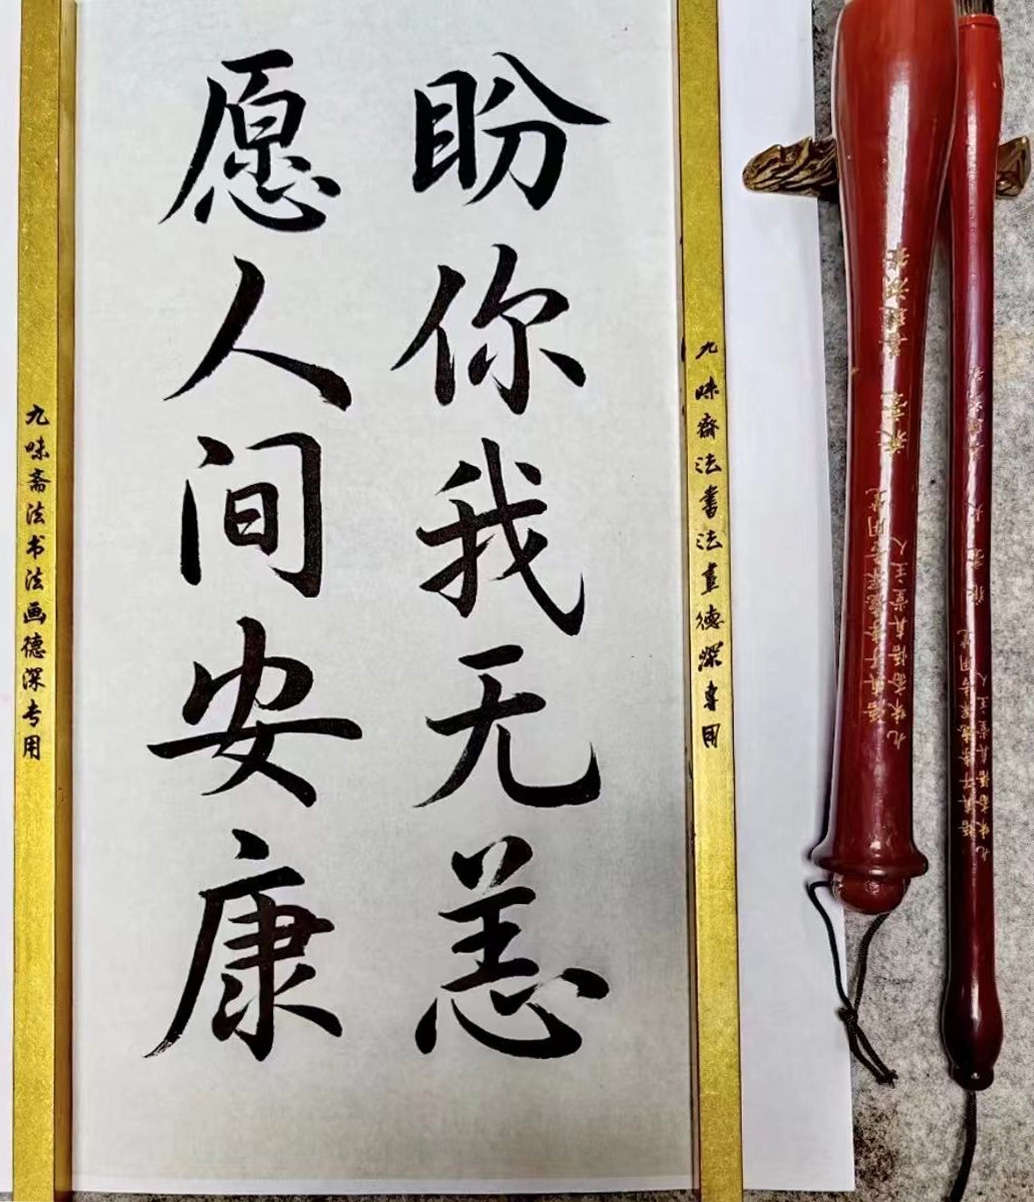 盼你我无恙
愿人间安康
九味齋法書法畫德深專用
九味斋法书法画德深专用